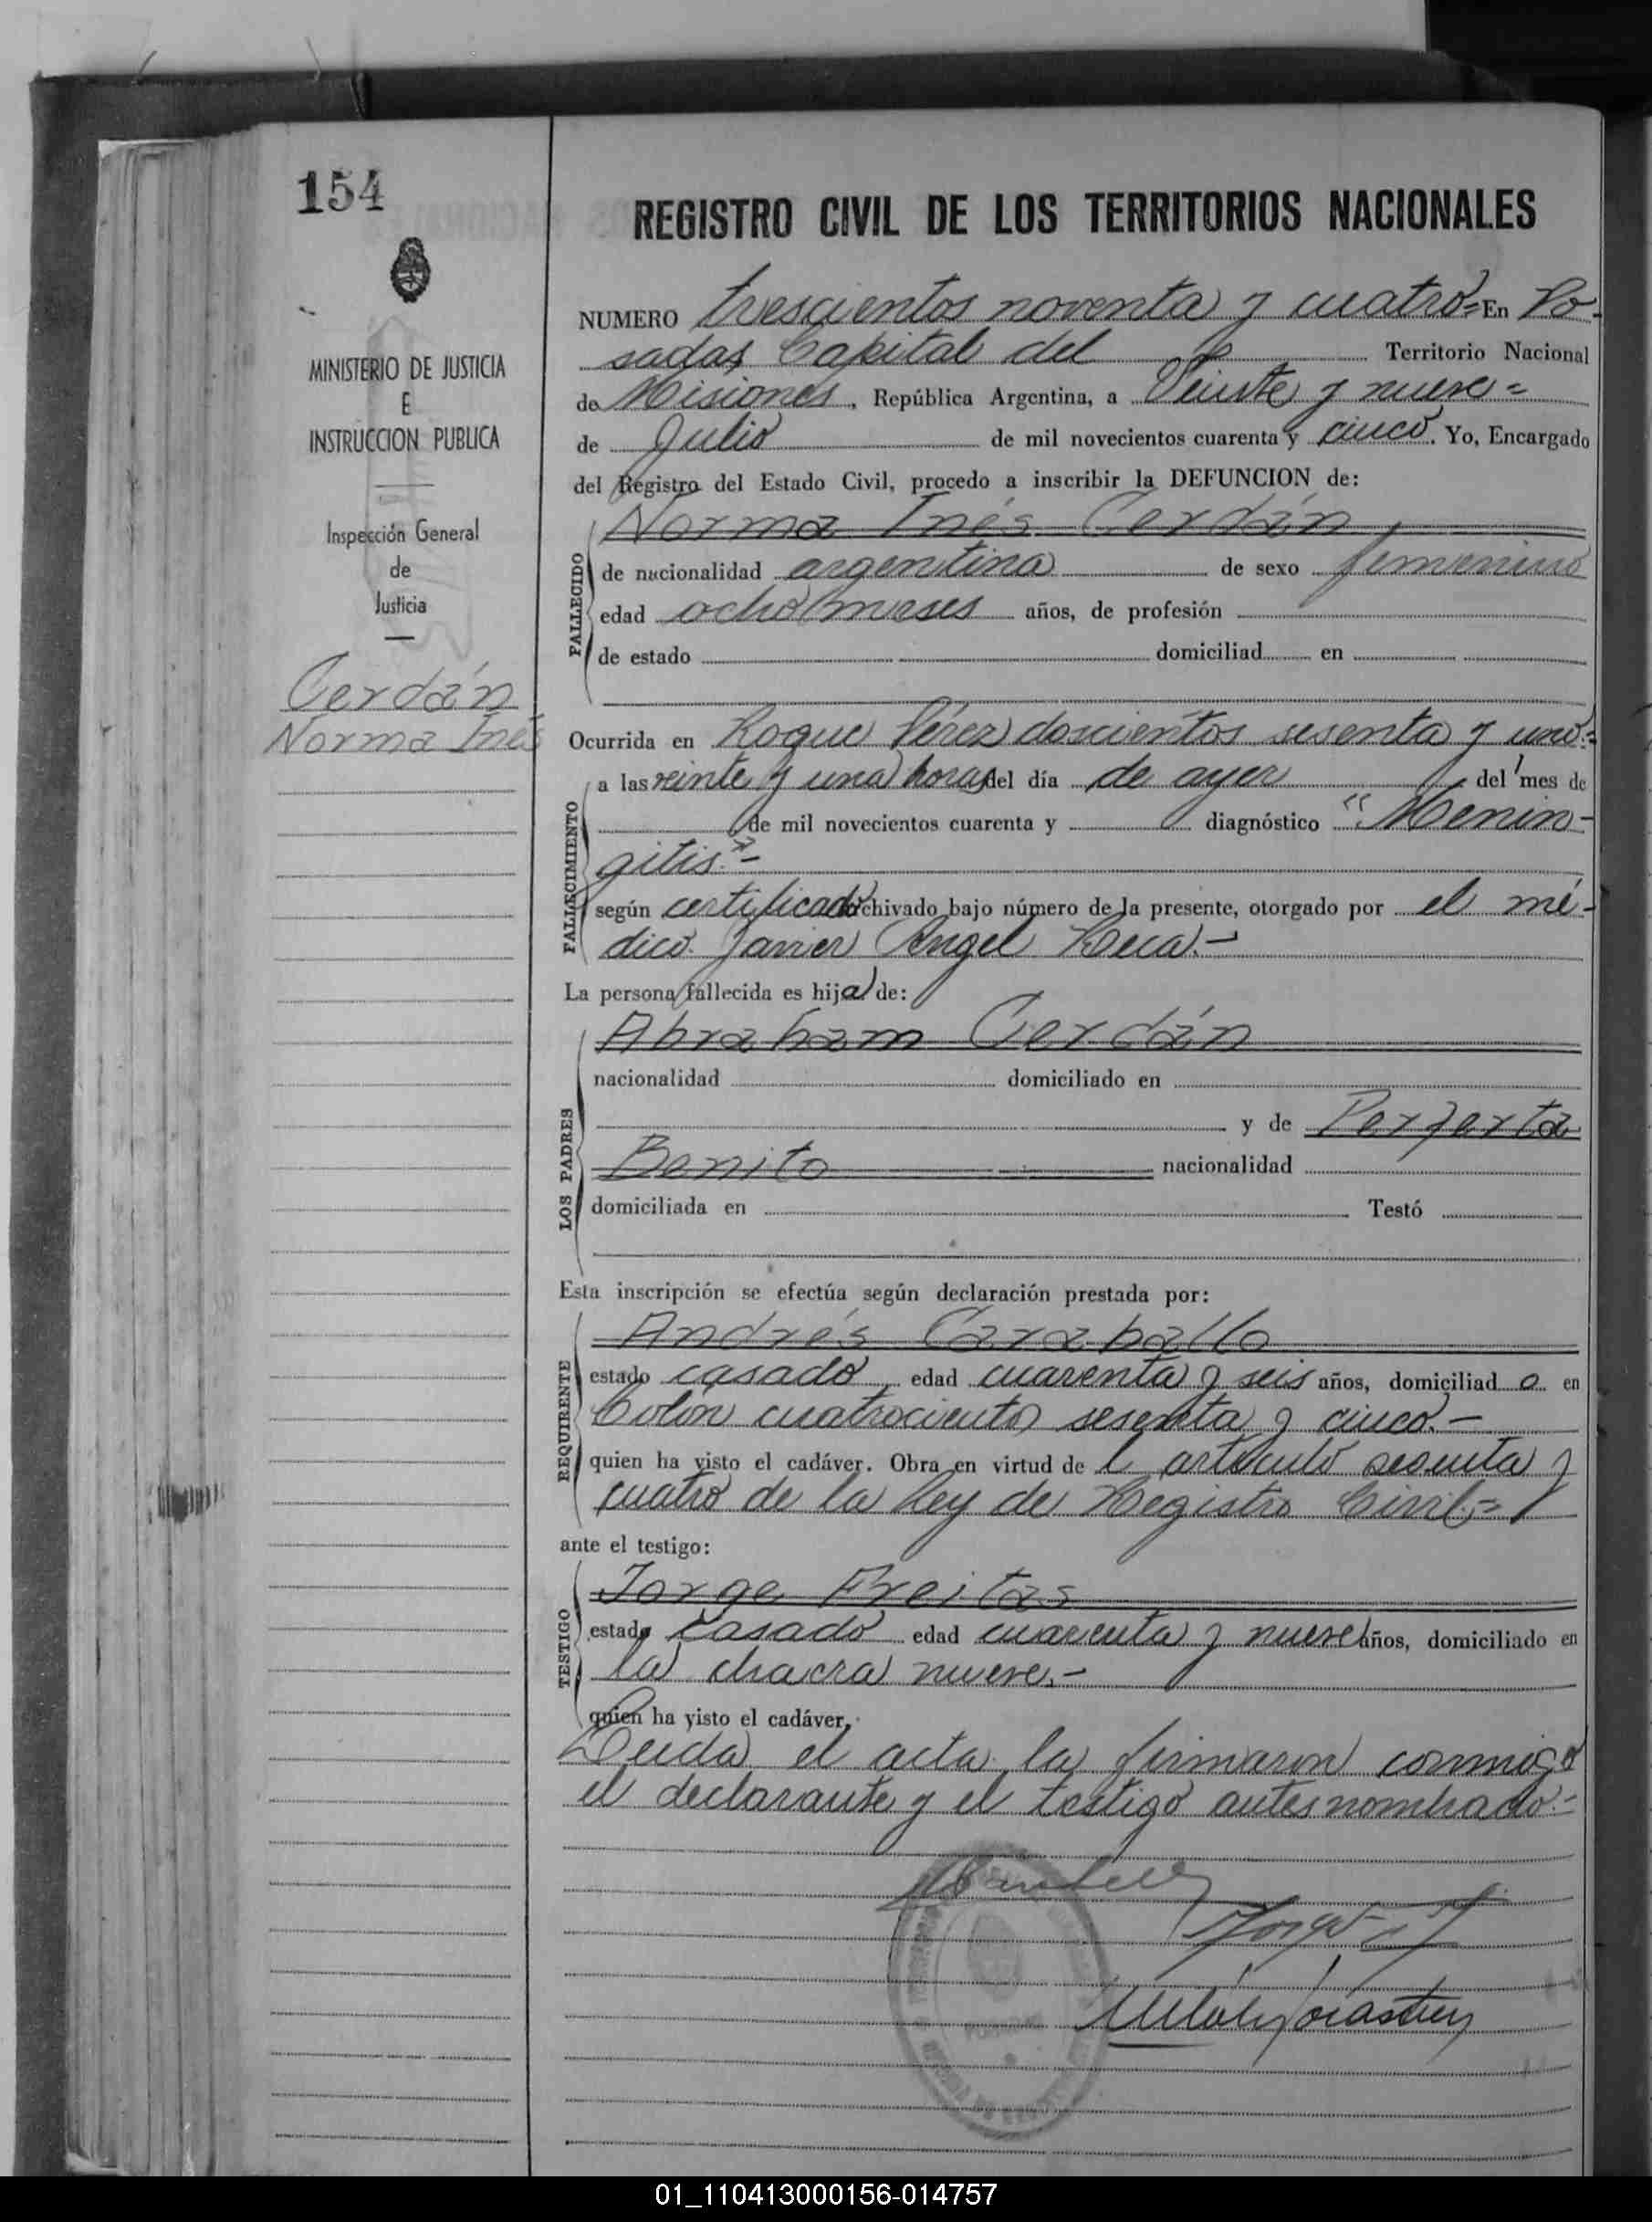 154
REGISTRO CIVIL DE LOS TERRITORIOS NACIONALES
MINISTERIO DE JUSTICIA
E
INSTRUCCION PUBLICA
Inspección General
de
Justicia
Cerdán
Norma Inés
NUMERO trescientos noventa y cuatro= En Po-
sadas Capital del Territorio Nacional
de Misiones, República Argentina, a Veinte y nueve=
de Julio de mil novecientos cuarenta y cinco. Yo, Encargado
del Registro del Estado Civil, procedo a inscribir la DEFUNCION de:
FALLECIDO
Norma Inés Cerdán
de nacionalidad argentina de sexo femenino
edad ocho meses años, de profesión
de estado domiciliad en
Ocurrida en Roque Pérez doscientos sesenta y uno=
FALLECIMIENTO
a las veinte y una horas del día de ayer del mes de
de mil novecientos cuarenta y diagnóstico "Menin-
gitis"-
según certificado archivado bajo número de la presente, otorgado por el mé-
dico Javier Angel
La persona fallecida es hija de:
LOS PADRES
Abraham Cerdán
nacionalidad domiciliado en
y de Perfecta
Benito nacionalidad
domiciliada en Testó
Esta inscripción se efectúa según declaración prestada por:
REQUIRENTE
Andrés Caraballo
estado casado edad cuarenta y seis años, domiciliad o en
Colón cuatrocientos sesenta y cinco.-
quien ha visto el cadáver. Obra en virtud de l artículo sesenta y
cuatro de la Ley de Registro Civil=
ante el testigo:
TESTIGO
Jorge Freitas
estado casado edad cuarenta y nueve años, domiciliado en
la chacra nueve.-
quien ha visto el cadáver.
Leida el acta la firmaron conmigo
el declarante y el testigo antes nombrado.-
01_110413000156-014757